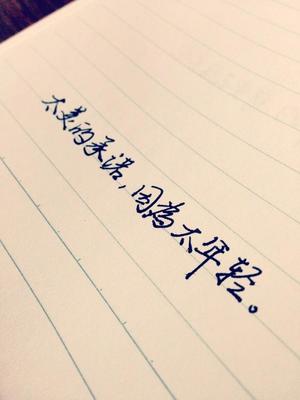 太美的承诺,因为太年轻。